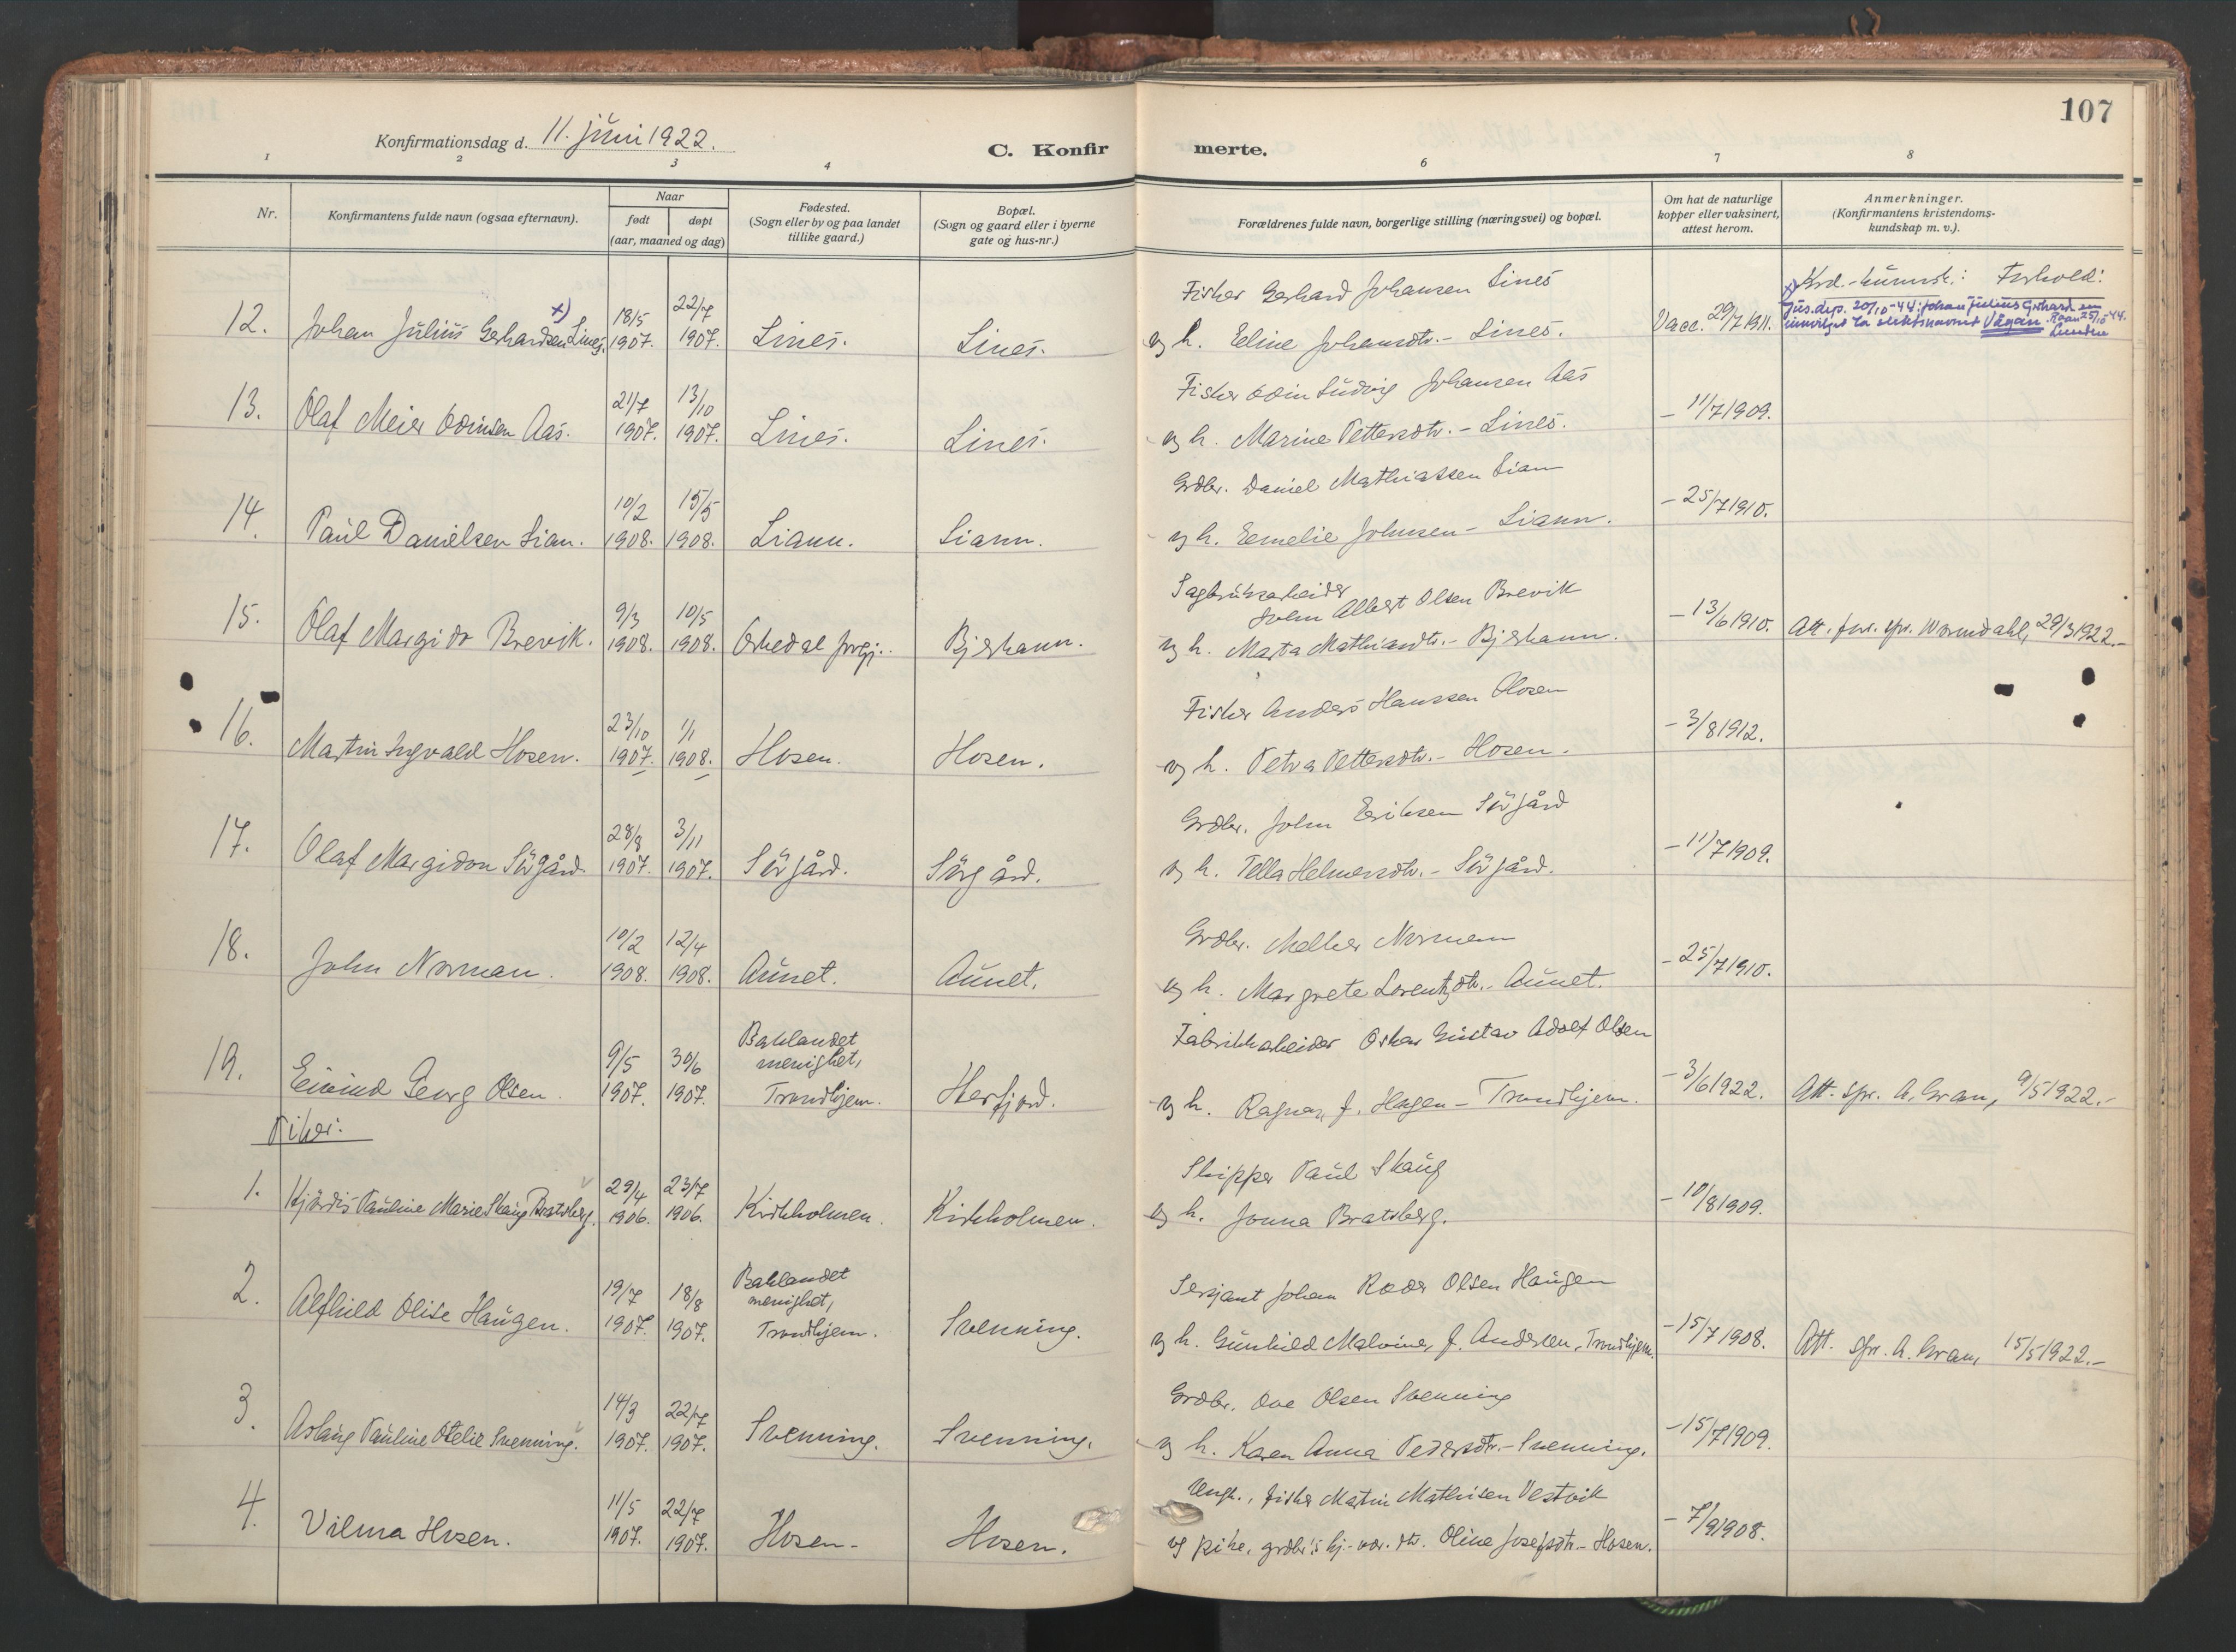 107
Konfirmationsdag d. 11. juni 1922.
C. Konfirmerte.
1 2 3 4 6 7 8
Nr.
Konfirmantens fulde navn (ogsaa efternavn).
Naar
født døpt
(aar, maaned og dag)
Fødested.
(Sogn eller by og paa landet
tillike gaard.)
Bopæl.
(Sogn og gaard eller i byerne
gate og hus-nr.)
Forældrenes fulde navn, borgerlige stilling (næringsvei) og bopæl.
Om hat de naturlige
kopper eller vaksinert,
attest herom.
Anmerkninger.
(Konfirmantens kristendoms-
kundskap m. v.).
Krd.-kunnsk.: Forhold:
x) Jus.dep. 20/10-44: Johan Julius Gerhardsen
innvilget ta slektsnavnet Vågan. 25/10-44.
12. Johan Julius Gerhardsen Lines. x) 18/5 1907. 22/7 1907. Lines. Lines.
Fisker Gerhard Johansen Lines
og h. Eline Johansdtr. - Lines. Vacc. 29/7 1911.
13. Olaf Meier Odinsen Aas. 21/7 1907. 13/10 1907. Lines. Lines.
Fisker Odin Ludvig Johansen Aas
og h. Marine Pettersdtr. - Lines. - 11/7 1909.
14. Paul Danielsen Lian. 10/2 1908. 15/5 1908. Liann. Liann.
Grdbr. Daniel Mathiassen Lian
og h. Emelie Johnsen - Liann. - 25/7 1910.
15. Olaf Margido Brevik. 9/3 1908. 10/5 1908. Orkedal prgj. Bjørkann.
Sagbruksarbeider
John Albert Olsen Brevik
og h. Marta Mathiasdtr. - Bjørkann. - 13/6 1910. Att. fra spr. Wormdahl, 29/3 1922.-
16. Martin Ingvald Hosen. 23/10 1907. 1/1 1908. Hosen. Hosen.
Fisker Anders Hanssen Hosen
og h. Petra Pettersdtr. - Hosen. - 3/8 1912.
17. Olaf Margidon Sörgård. 28/8 1907. 3/11 1907. Sörgård. Sörgård.
Grdbr. John Eriksen Sörgård
og h. Pella Helmersdtr. - Sörgård. - 11/7 1909.
18. John Norman. 10/2 1908. 12/4 1908. Aunet. Aunet.
Grdbr. Melker Norman
og h. Margrete Lorentzdtr. - Aunet. - 25/7 1910.
19. Eivind Georg Olsen. 9/5 1907. 30/6 1907. Baklandet menighet, Trondhjem. Herfjord.
Fabrikkarbeider Oskar Gustav Adolf Olsen
og h. Ragna, f. Hagen - Trondhjem. - 3/6 1922. Att. spr. A. Gran, 9/5 1922.-
Piker:
1. Hjördis Pauline Marie Skaug Bratsberg. 29/4 1906. 23/7 1906. Kirkholmen. Kirkholmen.
Skipper Paul Skaug
og h. Jonna Bratsberg. - 10/8 1909.
2. Alfhild Olise Haugen. 19/7 1907. 18/8 1907. Baklandet menighet, Trondhjem. Svenning.
Serjant Johan Roder Olsen Haugen
og h. Gunhild Malvine, f. Andersen, Trondhjem. - 15/7 1908. Att. spr. A. Gran, 15/5 1922.-
3. Aslaug Pauline Otelie Svenning. 14/3 1907. 22/7 1907. Svenning. Svenning.
Grdbr. Ove Olsen Svenning
og h. Karen Anna Pedersdtr. - Svenning. - 15/7 1909.
4. Vilma Hosen. 11/5 1907. 22/7 1907. Hosen. Hosen.
Ungk., fisker Martin Mathisen Vestvik
og pike, grdbr's hj.-vær. dtr. Oline Josefsdtr. - Hosen. - 7/9 1908.